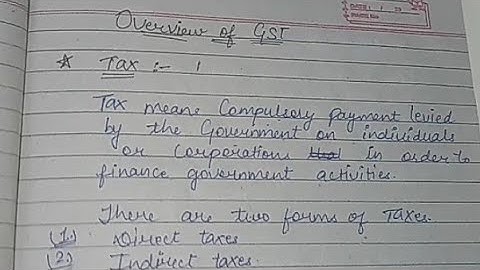 Overview of GST
* Tax :-
Tax means Compulsory payment levied
by the Government on individuals
or Corporations in order to
finance government activities.
There are two forms of Taxes.
(1.) Direct taxes
(2.) Indirect taxes.